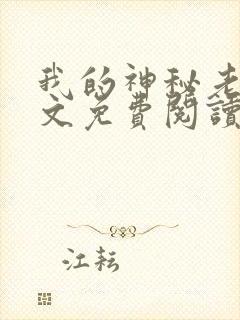 我的神秘老
文免費閱讀
江耘